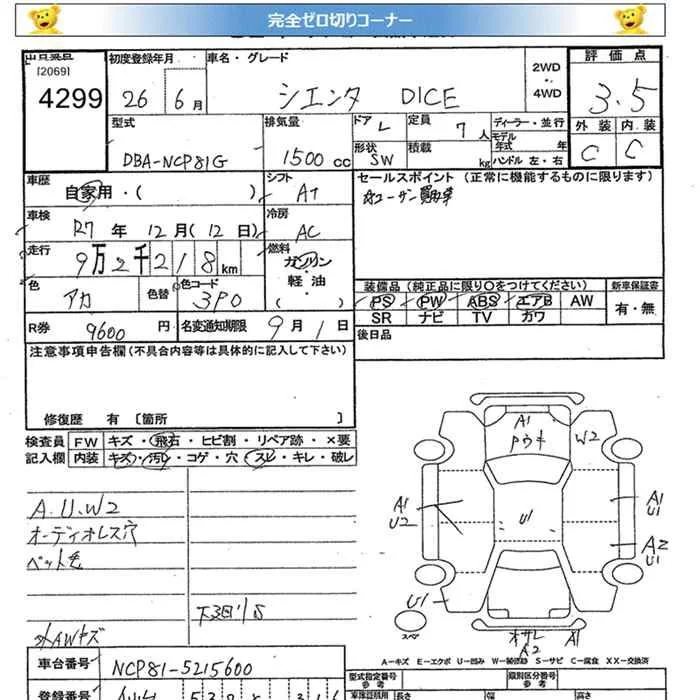 完全ゼロ切りコーナー
[2069]
4299
初度登録年月
26 6月
車名・グレード
シエンタ DICE
2WD
4WD
評価点
3.5
外装 内装
C C
型式
DBA-NCP81G
排気量
1500 cc
ドア
形状 SW
定員 7人
積載 kg
ディーラー・並行
モデル年式 年
ハンドル 左・右
車歴
自家用・( )
シフト
AT
車検
R7年 12月(12日)
冷房
AC
走行
9万2千218km
燃料
ガソリン
軽油
色
アカ
色替
色コード
3P0
R券
9600円
名変通知期限 9月1日
セールスポイント (正常に機能するものに限ります)
☆ユーザー買取車
装備品 (純正品に限り〇をつけてください)
PS PW ABS エアB AW
SR ナビ TV カワ
新車保証書
有・無
後日品
注意事項申告欄(不具合内容等は具体的に記入して下さい)
修復歴 有 [箇所 ]
検査員記入欄
FW キズ・飛石・ヒビ割・リペア跡・×要
内装 キズ・汚レ・コゲ・穴・スレ・キレ・破レ
A.U.W2
オーディオレス穴
ペット毛
外AWキズ
A1
W2
A1
U2
U1
A1
U1
A2
U1
U1
スペア
A2
A1
A-キズ E-エクボ U-凹み S-サビ C-腐食 XX-交換済
車台番号
NCP81-5215600
登録番号
型式指定番号
参考
類別区分番号
参考
長さ
幅
高さ